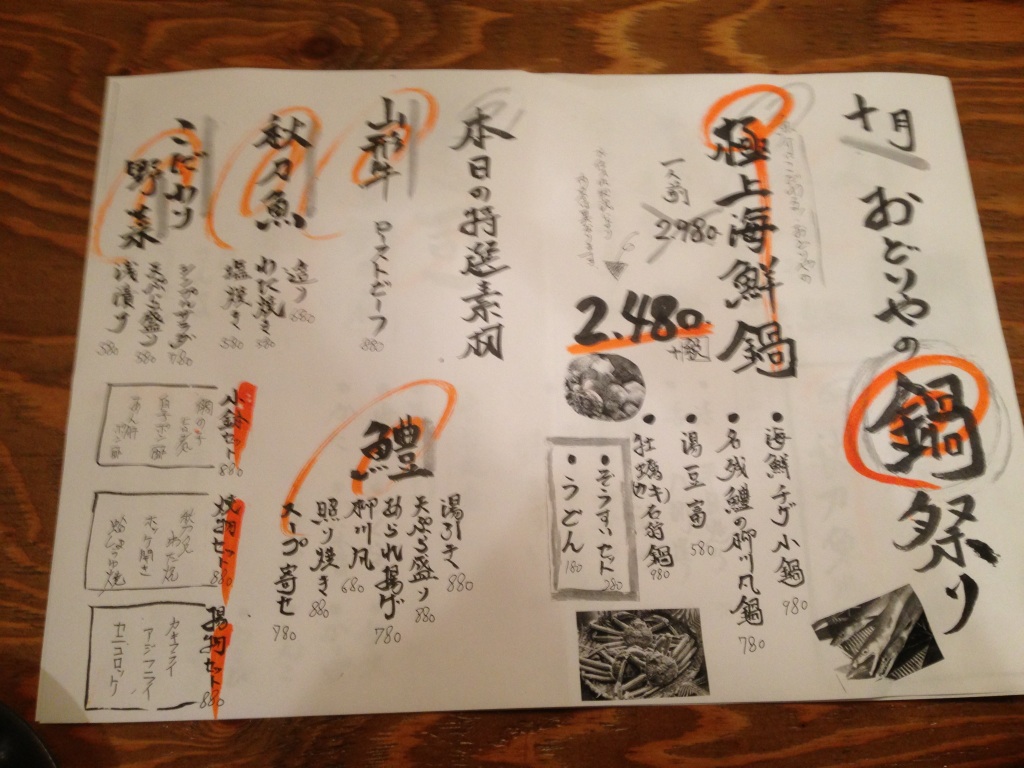 十月 おどりやの 鍋祭り
極上海鮮鍋
一人前
2980
2.480.
・海鮮チゲ小鍋 980
・名残鱧の柳川風鍋 780
・湯豆富 580
・牡蠣(カキ)名笛鍋 980
・ぞうすいセット 280
・うどん 180
本日の特選素材
山形牛
ローストビーフ 880
秋刀魚
造り 680
わた焼き 580
塩焼き 580
こだわり野菜
シンプルサラダ 780
天ぷら盛り 580
浅漬け 580
鱧
湯引き 880
天ぷら盛り 880
あられ揚げ 780
柳川風 680
照り焼き 880
スープ寄せ 780
小鉢セット 880
焼物セット 880
ホッケ開き
揚物セット 880
カキフライ
アジフライ
カニコロッケ